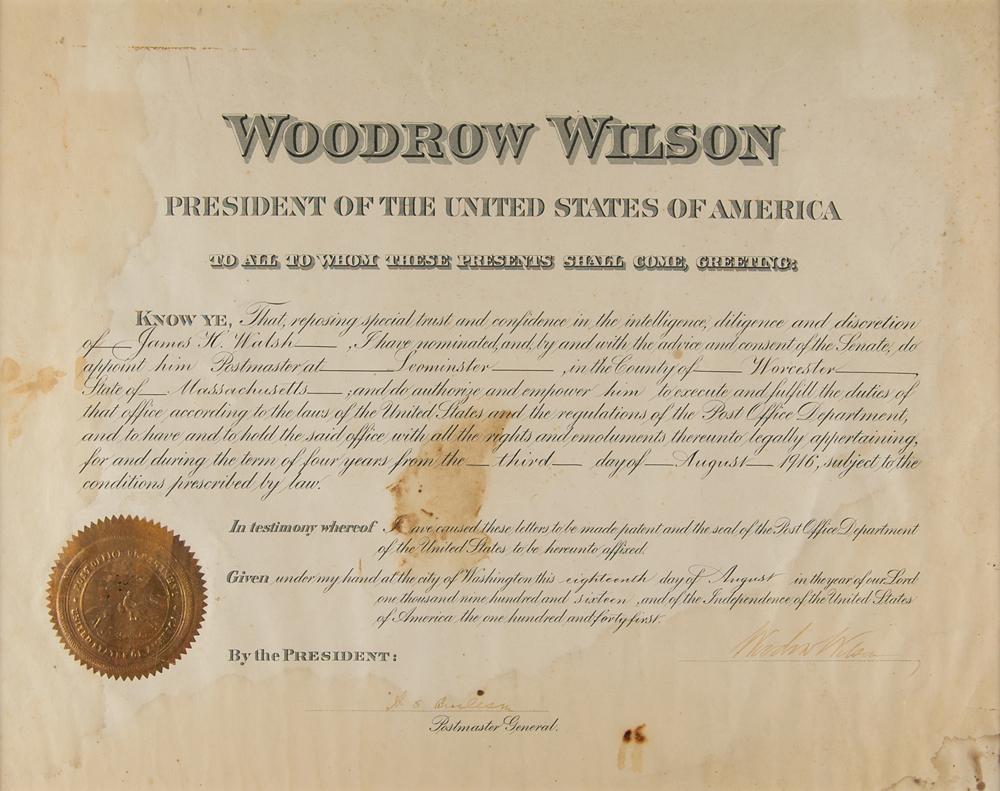 WOODROW WILSON
PRESIDENT OF THE UNITED STATES OF AMERICA
TO ALL TO WHOM THESE PRESENTS SHALL COME, GREETING:
KNOW YE, That, reposing special trust and confidence in the intelligence, diligence and discretion
of James H. Walsh, I have nominated, and, by and with the advice and consent of the Senate, do
appoint him Postmaster at Leominster, in the County of Worcester,
State of Massachusetts; and do authorize and empower him to execute and fulfill the duties of
that office according to the laws of the United States and the regulations of the Post Office Department,
and to have and to hold the said office, with all the rights and emoluments thereunto legally appertaining,
for and during the term of four years from the third day of August 1916, subject to the
conditions prescribed by law.
In testimony whereof I have caused these letters to be made patent and the seal of the Post Office Department
of the United States to be hereunto affixed.
Given under my hand at the city of Washington this eighteenth day of August in the year of our Lord
one thousand nine hundred and sixteen, and of the Independence of the United States
of America the one hundred and forty first.
By the PRESIDENT:
Woodrow Wilson
A S Burleson
Postmaster General.
POST OFFICE DEPARTMENT
UNITED STATES OF AMERICA